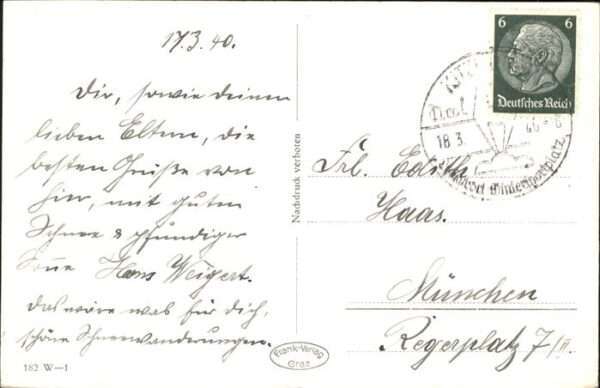 17.3.40.
Dir, sowie deinen
lieben Eltern, die
besten Grüße von
hier, mit guten
Schnee & pfundiger
Sonne Hans Weigert.
Das wäre was für dich,
schöne Schneewanderungen.
182 W—1
Nachdruck verboten
Frank-Verlag
Graz
6 6
Deutsches Reich
Tirol
18.3.
Wintersportplatz
Frl. Edith
Haas.
München
Regerplatz 7/II.